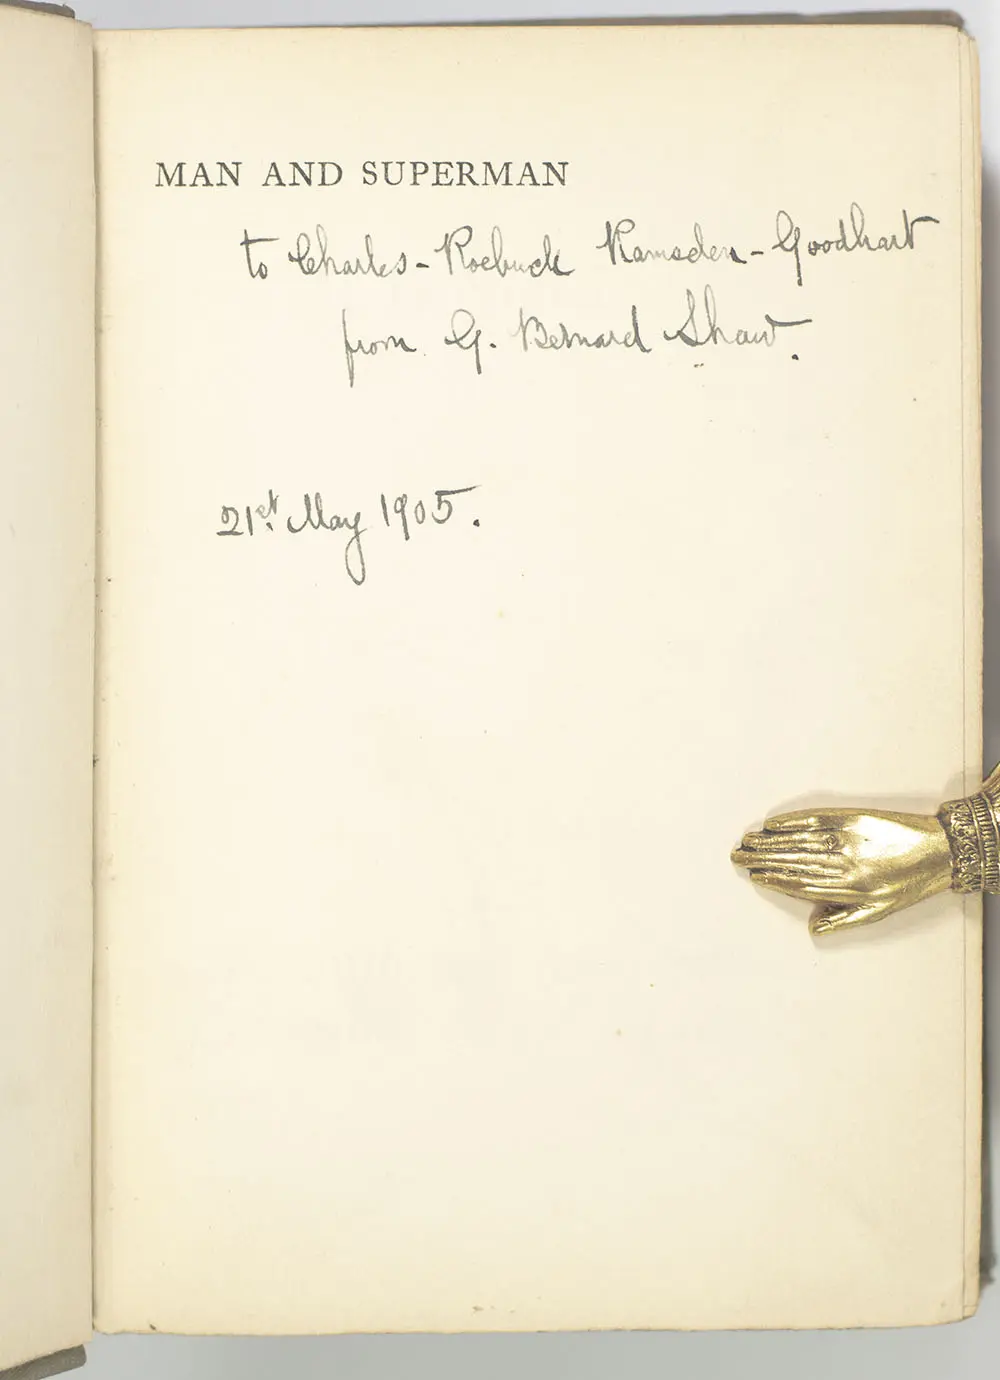 MAN AND SUPERMAN
to Charles-Roebuck Ramsden-Goodhart
from G. Bernard Shaw.
21st. May 1905.